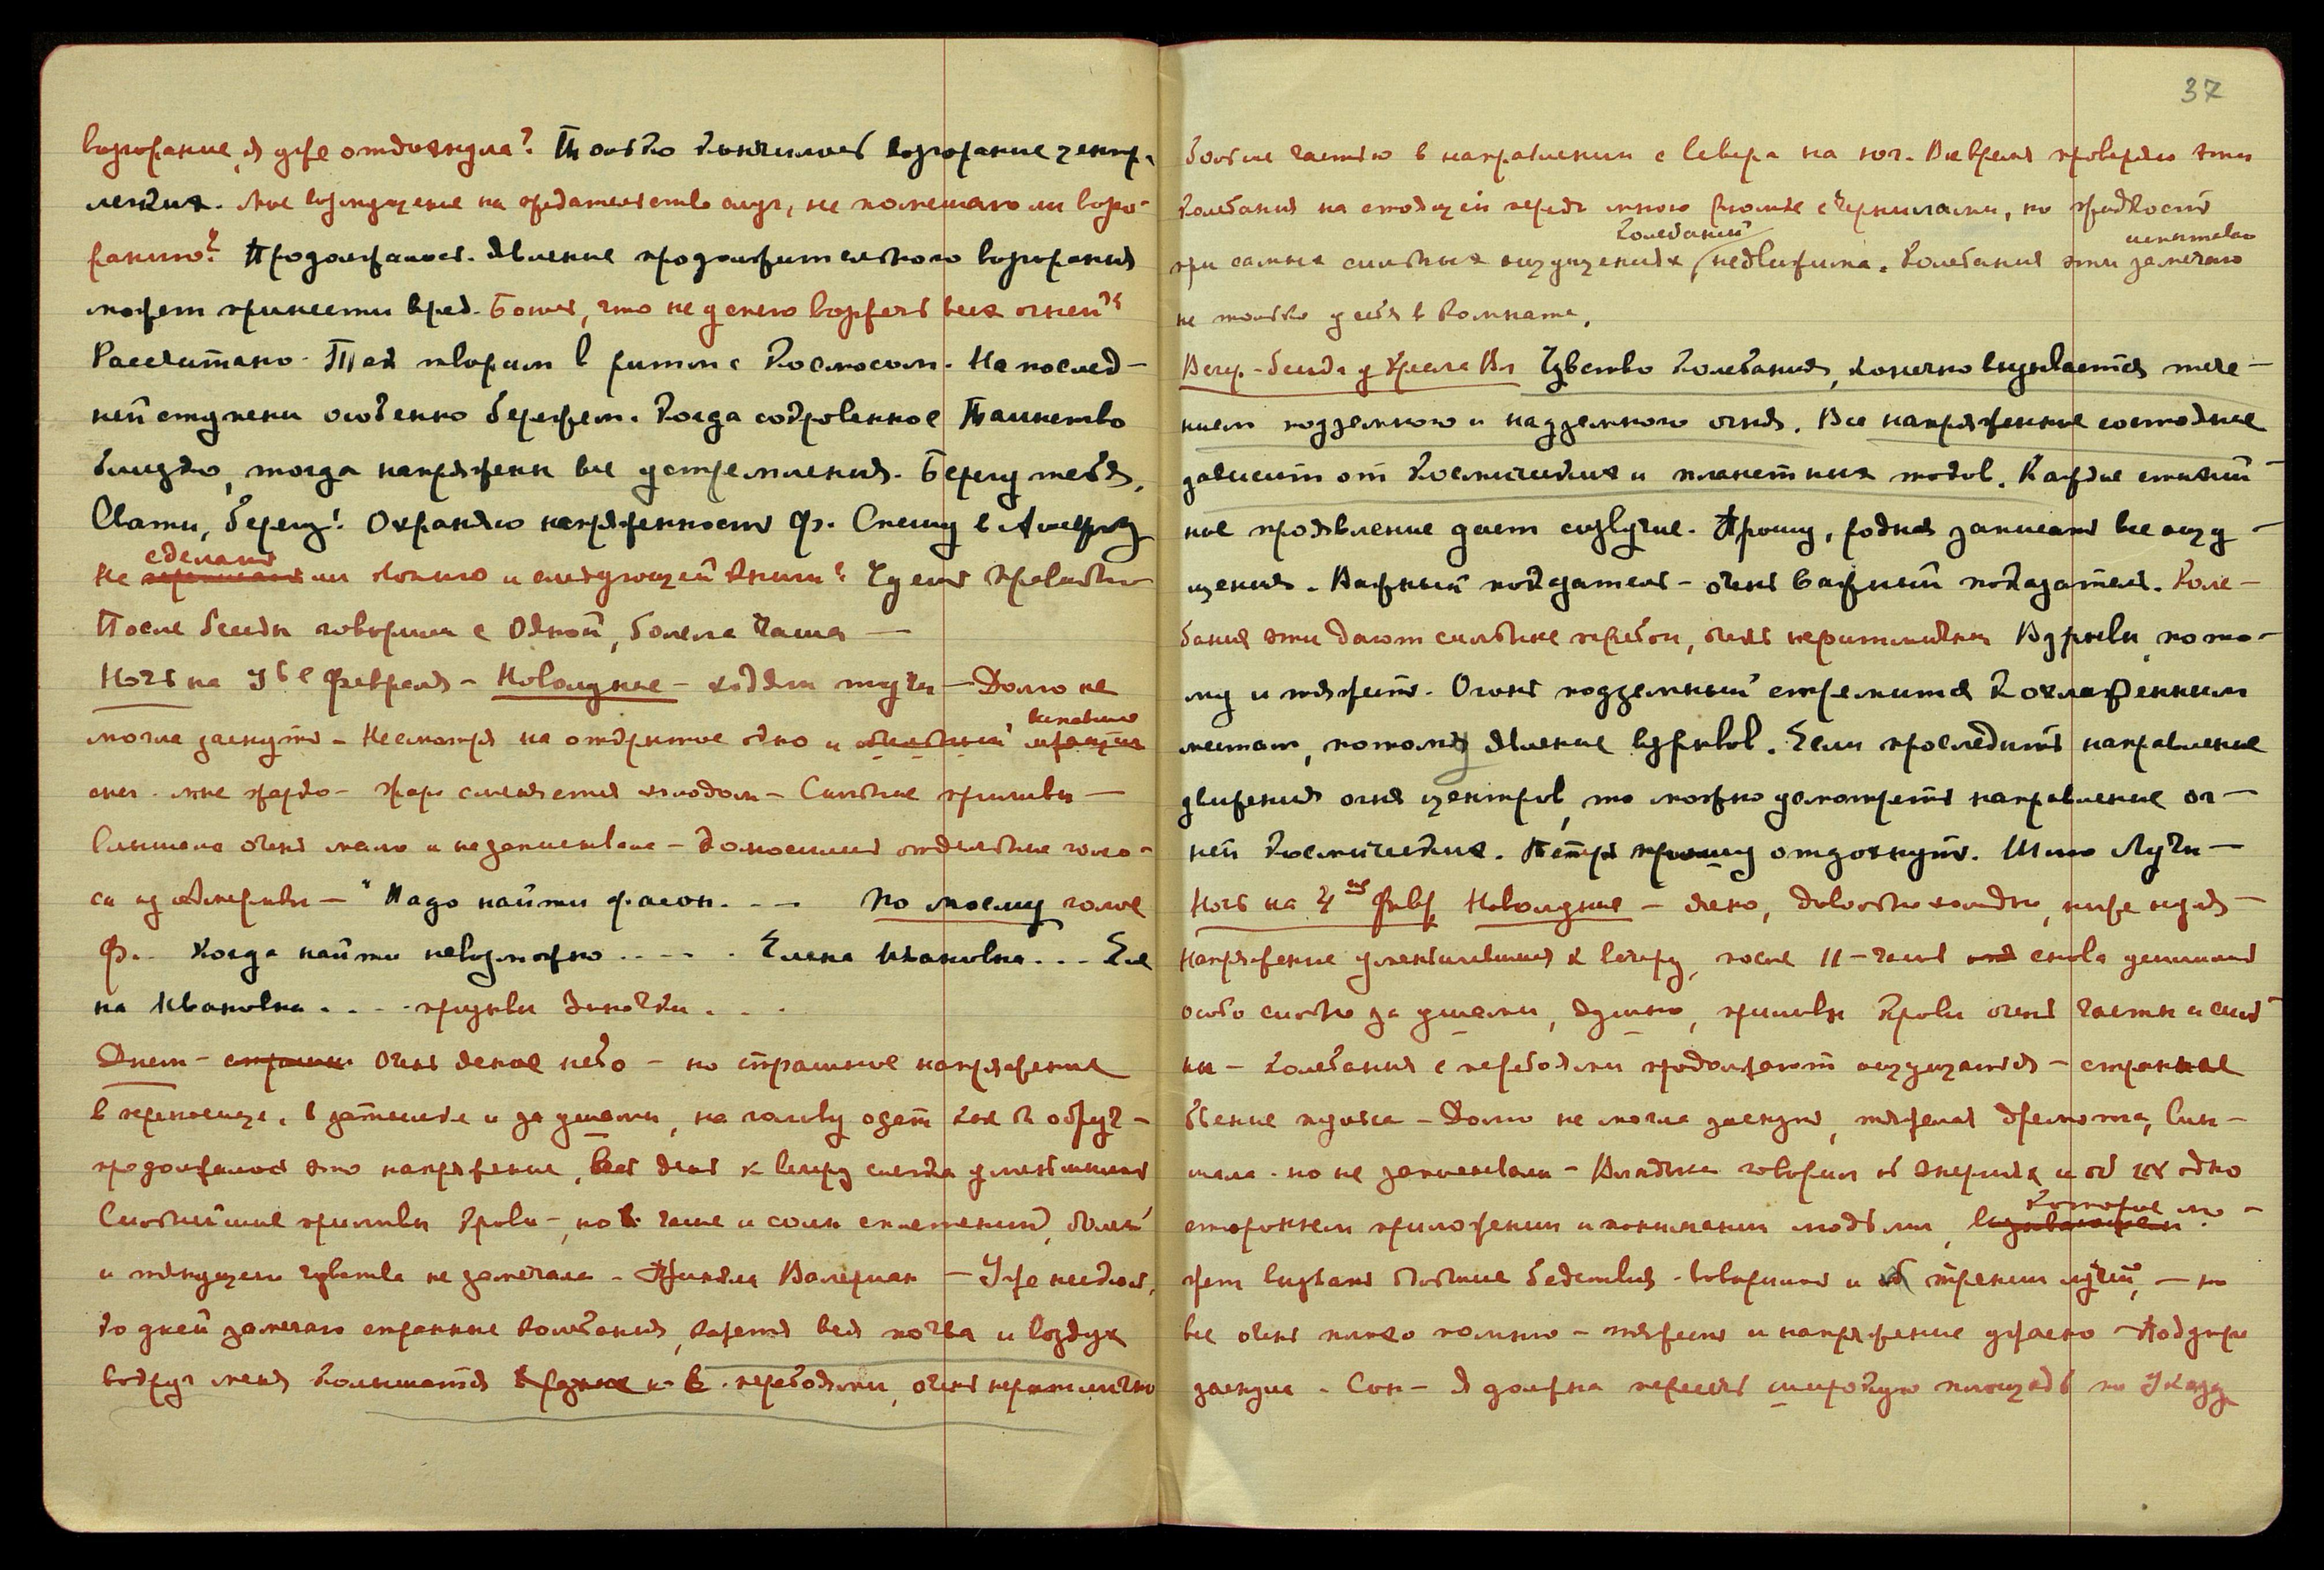 возгорание, я уже отдохнула? Только кончилось возгорание центр.
легких. Мое возмущение на предательство слуг, не помешало ли возго-
ранию? Продолжалось. Явление продолжительного возгорания
может принести вред. Боюсь, что не успею возжечь всех огней?
Рассчитано. Так творим в ритме с Космосом. На послед-
ней ступени особенно бережем. Когда сокровенное Таинство
близко, тогда напряжены все устремления. Берегу тебя,
Свати, берегу! Охраняю напряженность Ф. Спешу в Америку
сделать
Не ли копию и следующей книги? Чуешь правильно
После беседы говорили с Одной, болела Чаша —
Ночь на 3ье Февраля – Новолуние – ходили тучи — Долго не
могла заснуть – Несмотря на открытое окно и
выпавший
снег. мне жарко – жар сменяется холодом – Сильные приливы —
Слышала очень мало и не записывала – Доносились отдельные голо-
са из Америки — "Надо найти фасон. . -- По моему голос
Ф.. Когда найти невозможно . . -- . Елена Ивановна . . . Еле
на Ивановна . . -- призывы Зиночки . . .
Днем – страшн Очень ясное небо – но страшное напряжение
в переносице, в затылке и за ушами, на голову одет как бы обруч –
продолжалось это напряжение весь день к вечеру слегка уменьшилось
Сильнейшие приливы крови –, но в чаше и солн сплетений, болей
и тянущего чувства не замечала – Приняла Валериан — Уже несколь
ко дней замечаю странные колебания, кажется вся почва и воздух
вокруг меня колышатся с перебоями, очень неритмично
37
большею частью в направлении с севера на юг. Все время проверяю эти
колебания на стоящей передо мною рюмке с чернилами, но жидкость
колебаний
при самых сильных ощущениях недвижима. Колебания эти замечаю
испытываю
не только у себя в комнате,
Вечер. – беседа у Кресла Вл Чувство колебания, конечно вызывается тече-
нием подземного и надземного огня. Все напряженные состояние
зависит от Космических и планетных токов. Каждое стихий-
ное проявление дает созвучие. Прошу, родная записать все ощу-
щения. Важный показатель – очень важный показатель. Коле-
бания эти дают сильные перебои, очень неритмичны Взрывы, пото-
му и тяжело. Огонь подземный стремится к охлажденным
местам, потому явление взрывов. Если проследить направление
движения огня центров, то можно усмотреть направление ог-
ней космических. Теперь прошу отдохнуть. Шлю Лучи —
Ночь на 4ое Февр Новолуние – ясно, довольно холодно, ниже нуля —
Напряжение уменьшившееся к вечеру, после 11 – часов снова усилилось
особо сильно за ушами, душно, приливы крови очень часты и силь
ны – Колебания с перебоями продолжают ощущаться – странное
биение пульса – Долго не могла заснуть, тяжелая дремота, слы-
шала. но не записывала – Владыка говорил об энергиях и об их одно
стороннем приложении и понимании людьми,
которые мо-
жет вызвать большие бедствия. Говорилось и об трении лучей, — но
все очень плохо помню – тяжесть и напряжение ужасно — Под утро
заснула. Сон – Я должна пересечь широкую площадь по Указу